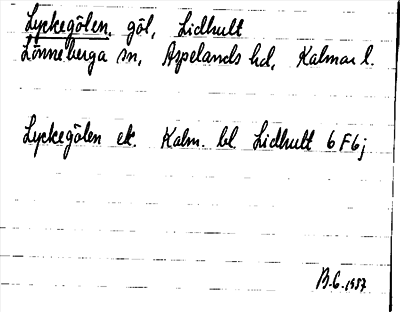 Lyckegölen, göl, Lidhult
Lönneberga sn, Aspelands hd, Kalmar l.
Lyckegölen ek. Kalm. bl Lidhult 6 F 6 j
B.G. 1937